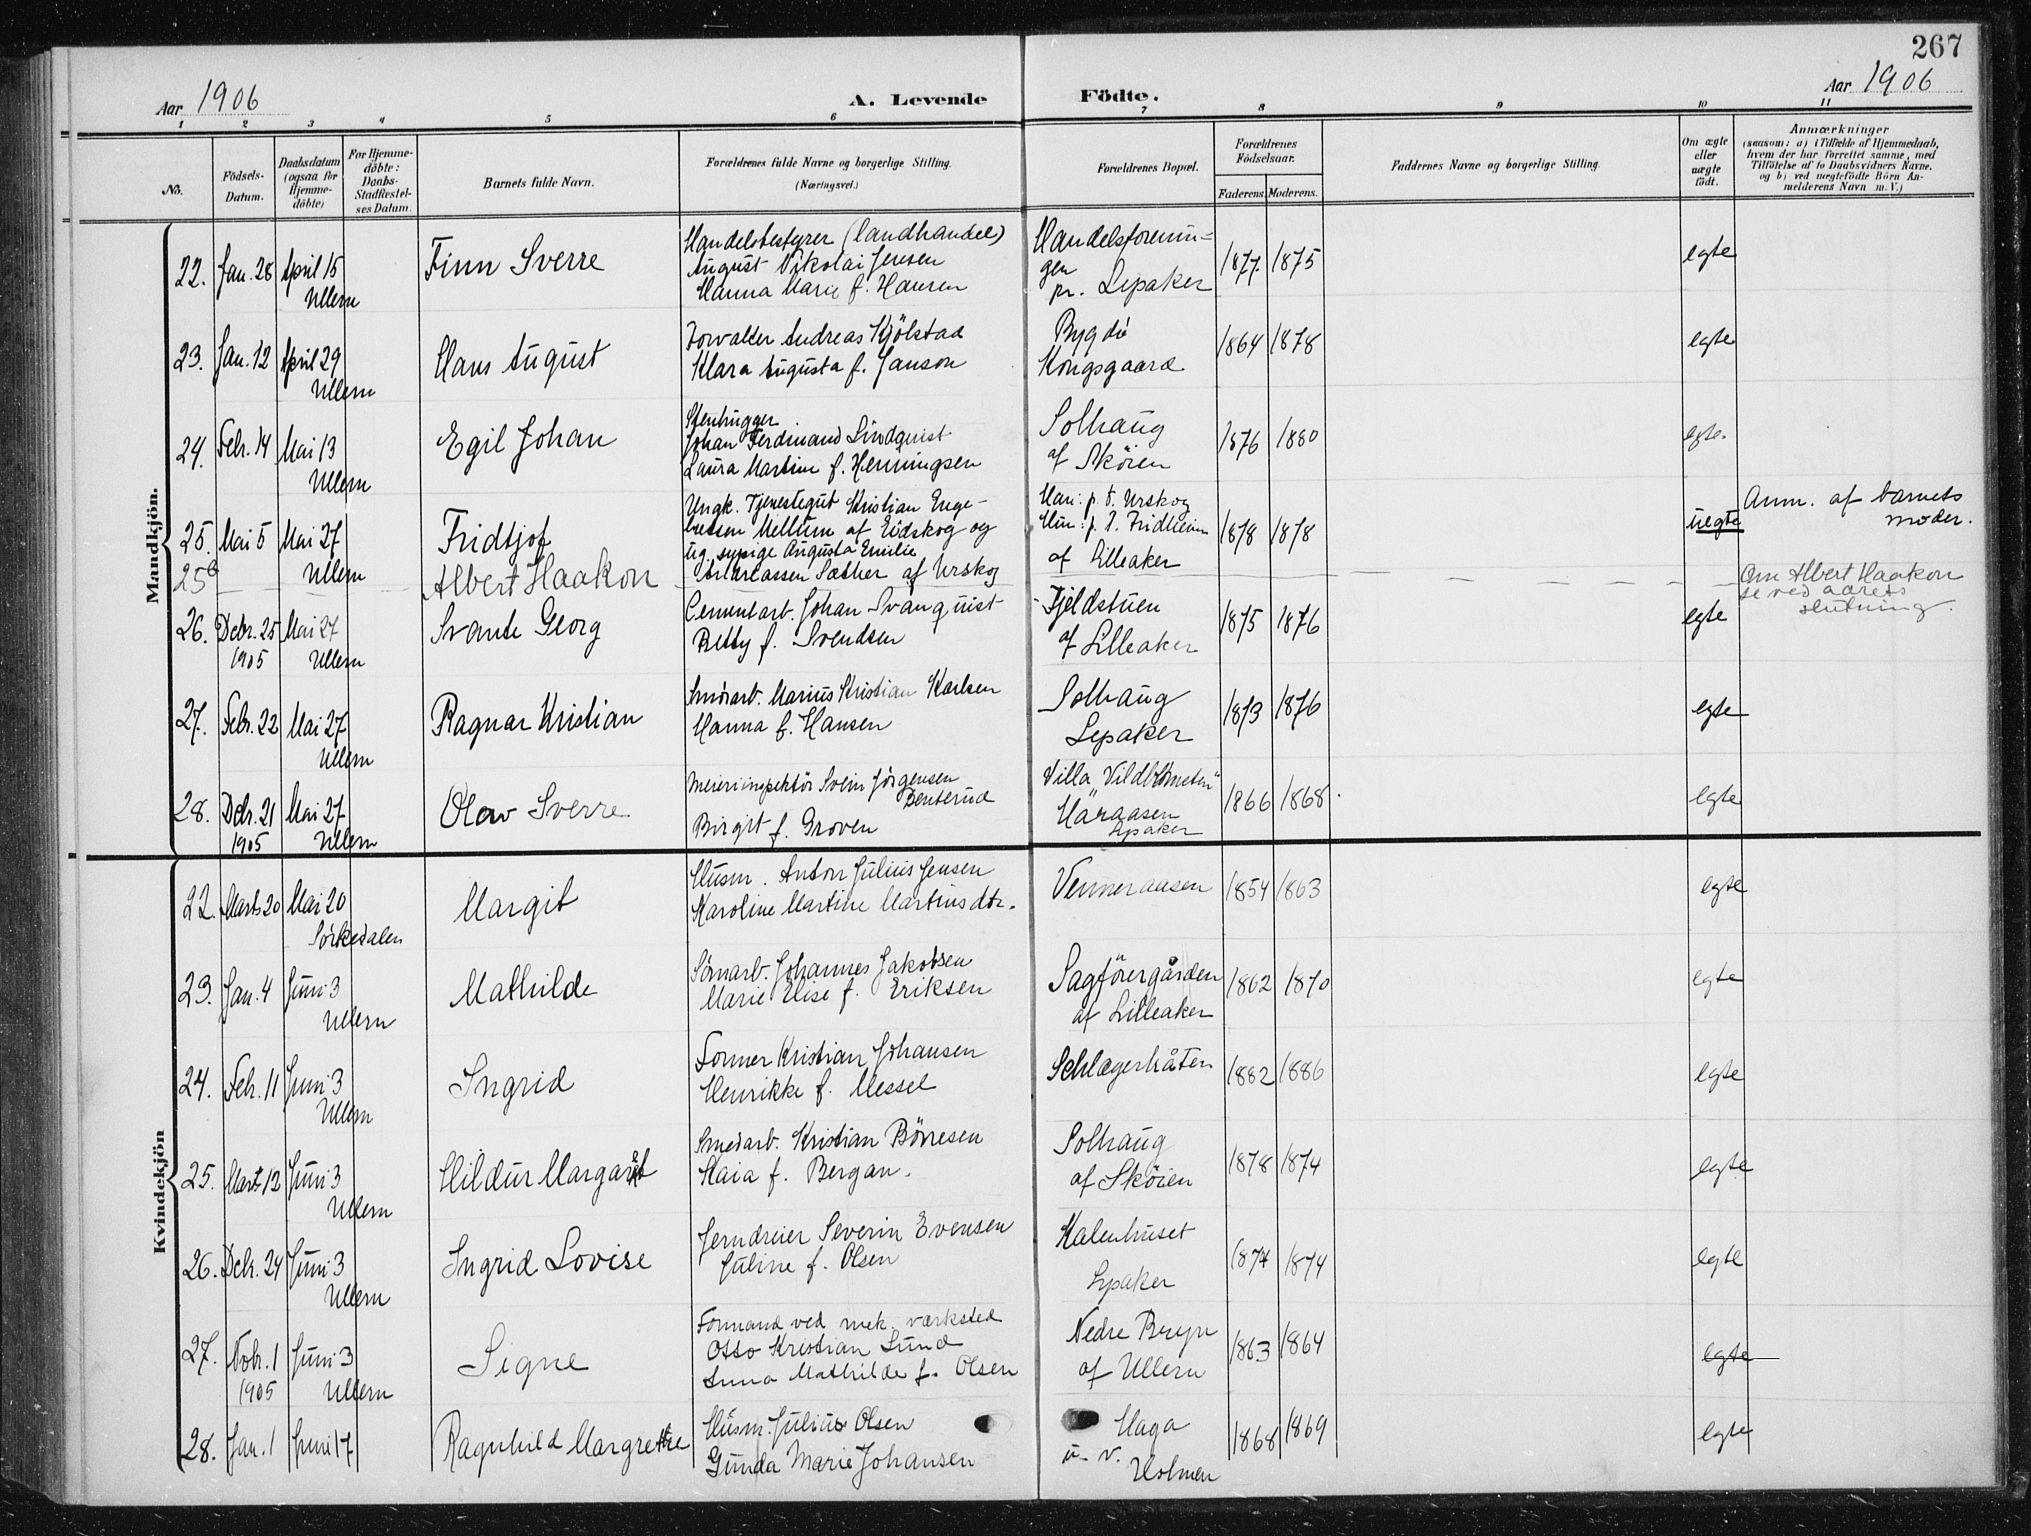 267
Aar 1906
A. Levende Födte.
Aar 1906
1 2 3 4 5 6 7 8 9 10 11
No.
Födsels-Datum.
Daabsdatum (ogsaa for Hjemme-döbte)
For Hjemme-döbte: Daabs-Stadfæstel-ses Datum.
Barnets fulde Navn.
Forældrenes fulde Navne og borgerlige Stilling. (Næringsvei.)
Forældrenes Bopæl.
Forældrenes Födselsaar.
Faderens. Moderens.
Faddrenes Navne og borgerlige Stilling.
Om ægte eller uægte födt.
Anmærkninger
(saasom: a) i Tilfælde af Hjemmedaab,
hvem der har forrettet samme, med
Tilföielse af to Daabsvidners Navne,
og b) ved uægtefödte Börn An-
melderens Navn m. V.)
Mandkjön.
22. Jan. 28 April 15 Ullern
Finn Sverre
Handelsbestyrer (landhandel)
August Nikolai Jensen
Hanna Marie f. Hansen
Handelsforenin-
gen
pr. Lysaker
1877. 1875
egte
23. Jan. 12 April 29 Ullern
Hans August
Forvalter Andreas Kjölstad
Klara Augusta f. Janson
Bygdö
Kongsgaard
1864 1878
egte
24. Febr. 14 Mai 13 Ullern
Egil Johan
Stenhugger
Johan Ferdinand Lindquist
Laura Martine f. Henningsen
Solhaug
af Sköien
1876 1880
egte.
25. Mai 5 Mai 27 Ullern
Fridtjof
Ungk. Tjenestegut Kristian Enge-
bretsen Mellum af Eidskog og
ug. sypige Augusta Emilie
Andreassen Sæther af Urskog
Han: p. t. Urskog
Hun: p. t. Fridheim
af Lilleaker
1878 1878
uegte
Anm. af barnets
moder.
25b
Albert Haakon
Om Albert Haakon
se ved aarets
slutning.
26. Debr. 25 1905 Mai 27 Ullern
Svante Georg
Cementarb. Johan Svanquist
Betty f. Svendsen
Fjeldstuen
af Lilleaker
1875 1876
egte
27. Febr. 22 Mai 27 Ullern
Ragnar Kristian
Marius Kristian Karlsen
Hanna f. Hansen
Solhaug
Lysaker
1873 1876
egte
28. Debr. 21 1905 Mai 27 Ullern
Olav Sverre
Meieriinspektör Svein Jörgensen
Benterud
Birgit f. Groven
Villa "Vildblomsten"
Haraasen
Lysaker
1866 1868.
egte
Kvindekjön
22. Marts 20 Mai 20 Sörkedalen
Margit
Husm. Anton Julius Jensen
Karoline Martine Martinsdtr.
Venneraasen
1854 1863
egte
23. Jan. 4 Juni 3 Ullern
Mathilde
Johannes Jakobsen
Marie Elise f. Eriksen
Sagförergården
af Lilleaker
1862 1870
egte
24. Febr. 11 Juni 3 Ullern
Ingrid
Former Kristian Johansen
Henrikke f. Messel
Schlagerhåten
1882 1886
egte
25. Marts 12 Juni 3 Ullern
Hildur Margarit
Smedarb. Kristian Börresen
Kaia f. Bergan.
Solhaug
af Sköien
1878 1874
egte
26. Debr. 24 Juni 3 Ullern
Ingrid Lovise
Jerndreier Severin Evensen
Juline f. Olsen
Kalenhuset
Lysaker
1874 1874
egte
27. Nobr. 1 1905 Juni 3 Ullern
Signe
Formand ved mek. værksted
Otto Kristian Lund
Anna Mathilde f. Olsen
Nedre Bryn
af Ullern
1863 1864
egte
28. Jan. 1 Juni 17
Ragnhild Margrethe
Husm. Julius Olsen
Gunda Marie Johansen
Haga
u. v.
Holmen
1868 1869
egte